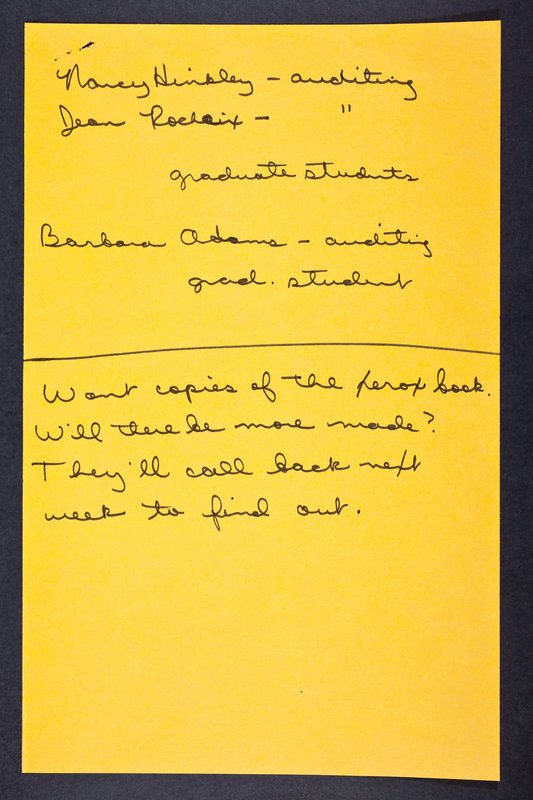 Nancy Hinkley - auditing
Jean - "
graduate students
Barbara Adams - auditing
grad. student
Want copies of the xerox book.
Will there be more made?
They'll call back next
week to find out.